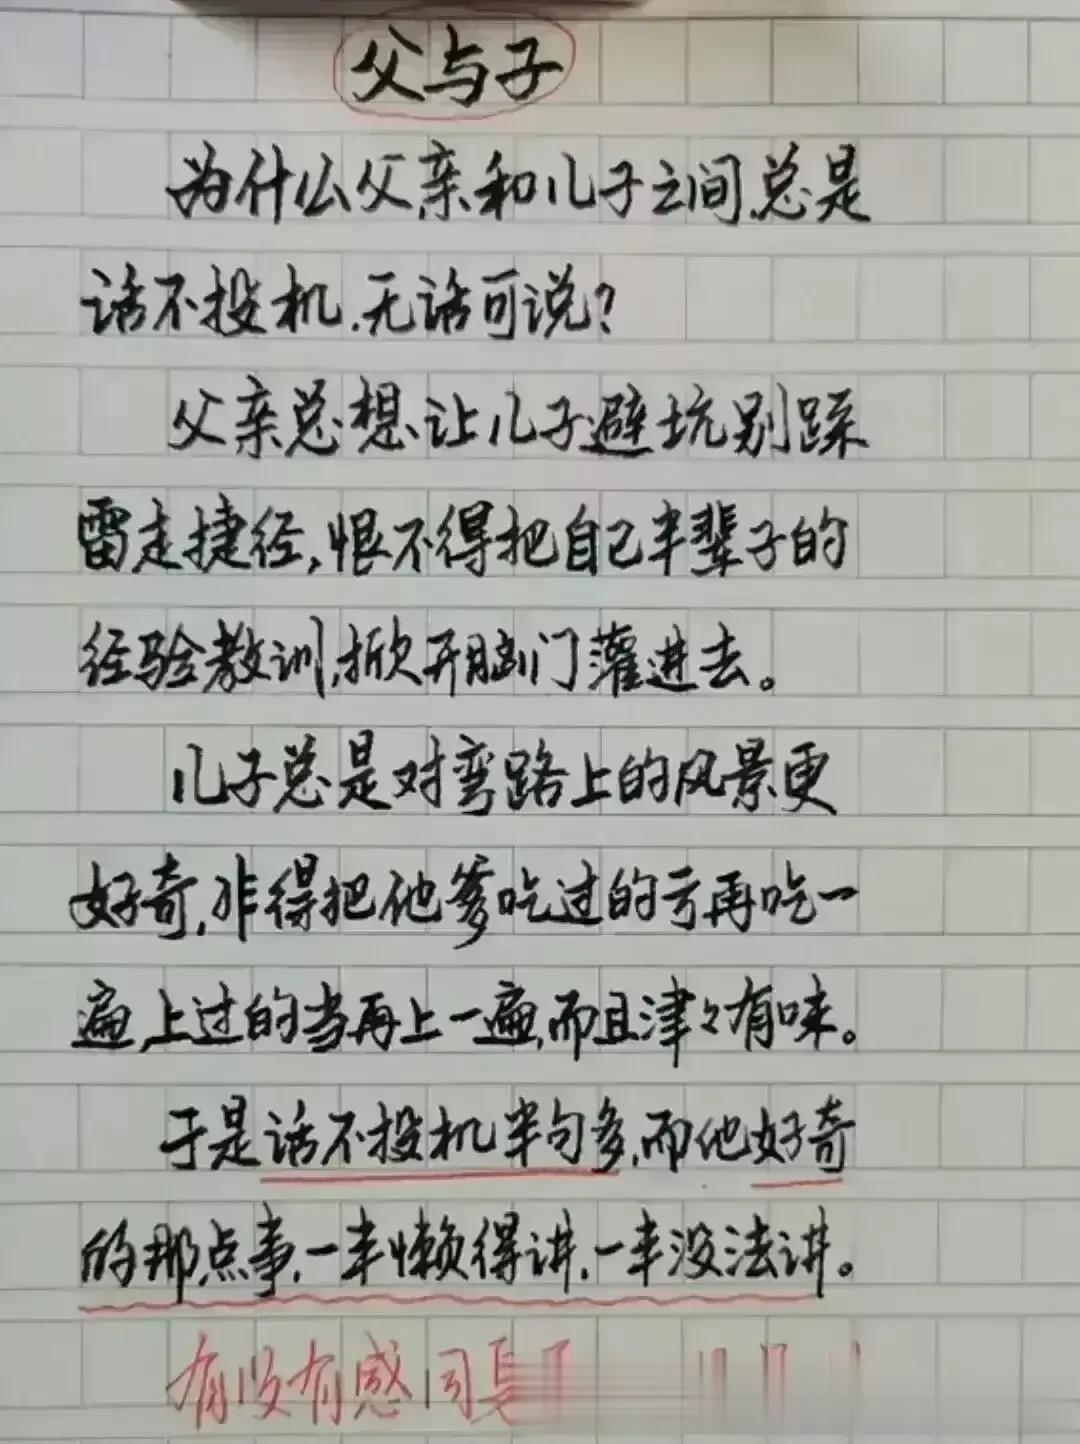 父与子
为什么父亲和儿子之间总是
话不投机,无话可说?
父亲总想让儿子避坑别踩
雷走捷径,恨不得把自己半辈子的
经验教训,掀开脑门灌进去。
儿子总是对弯路上的风景更
好奇,非得把他爹吃过的亏再吃一
遍,上过的当再上一遍,而且津々有味。
于是话不投机半句多,而他好奇
的那点事,一半懒得讲,一半没法讲。
有没有感同身